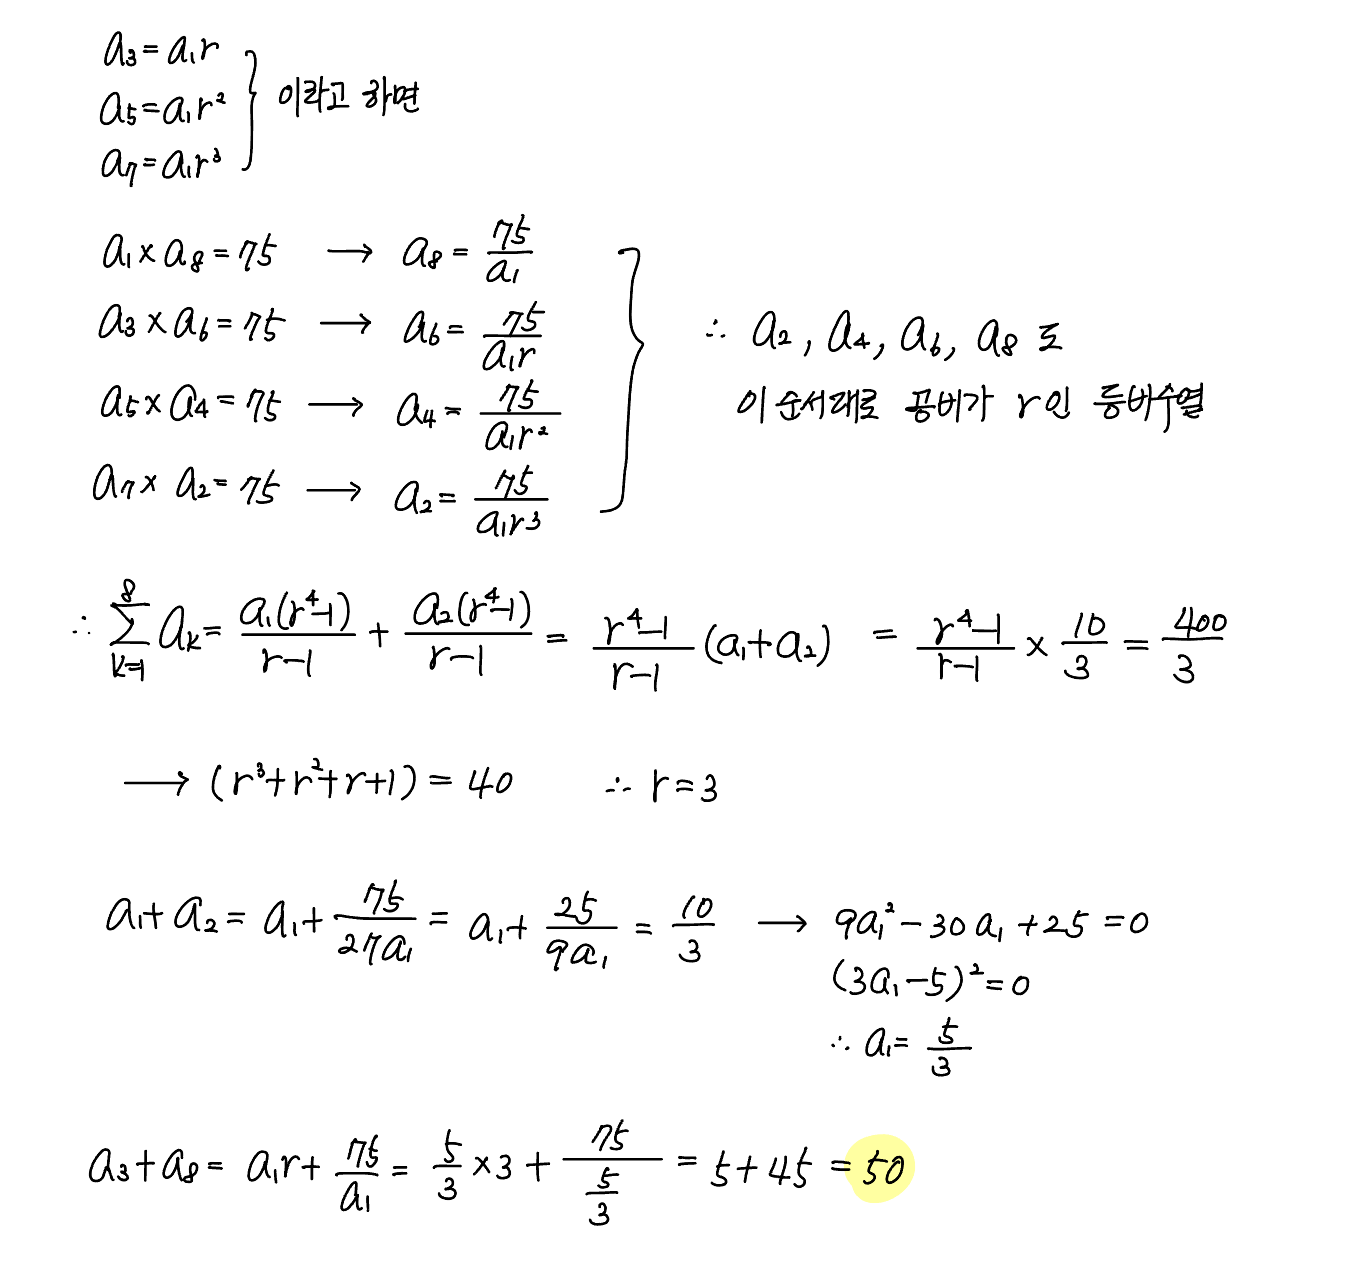 a₃ = a₁r
a₅ = a₁r² } 이라고 하면
a₇ = a₁r³
a₁ × a₈ = 75 → a₈ = 75/a₁
a₃ × a₆ = 75 → a₆ = 75/(a₁r)
a₅ × a₄ = 75 → a₄ = 75/(a₁r²)
a₇ × a₂ = 75 → a₂ = 75/(a₁r³)
∴ a₂, a₄, a₆, a₈ 도
이 순서대로 공비가 r인 등비수열
∴ ∑_{k=1}^{8} aₖ = a₁(r⁴-1)/(r-1) + a₂(r⁴-1)/(r-1) = (r⁴-1)/(r-1) (a₁+a₂) = (r⁴-1)/(r-1) × 10/3 = 400/3
→ (r³+r²+r+1) = 40 ∴ r=3
a₁+a₂ = a₁ + 75/(27a₁) = a₁ + 25/(9a₁) = 10/3 → 9a₁² - 30a₁ + 25 = 0
(3a₁-5)² = 0
∴ a₁ = 5/3
a₃+a₈ = a₁r + 75/a₁ = 5/3 × 3 + 75/(5/3) = 5+45 = 50